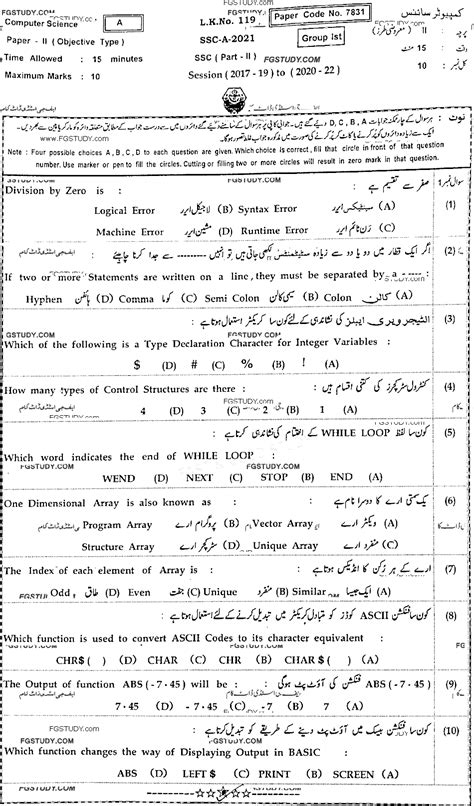 FGSTUDY.COM
Computer Science A L.K.No. 119 Paper Code No. 7831 کمپیوٹر سائنس
Paper - II (Objective Type) SSC-A-2021 Group Ist پرچہ : II (معروضی طرز)
Time Allowed : 15 minutes SSC (Part - II) FGSTUDY.COM وقت : 15 منٹ
Maximum Marks : 10 Session (2017 - 19) to (2020 - 22) کل نمبر : 10
WWW.FGSTUDY.COM
Note : Four possible choices A, B, C, D to each question are given. Which choice is correct, fill that circle in front of that question
number. Use marker or pen to fill the circles. Cutting or filling two or more circles will result in zero mark in that question.
سوال نمبر 1 صفر سے تقسیم ہے :
Division by Zero is : (1)
Logical Error لاجیکل ایرر (B) Syntax Error سینٹیکس ایرر (A)
Machine Error مشین ایرر (D) Runtime Error رن ٹائم ایرر (C)
اگر ایک قطار میں دو یا دو سے زیادہ سٹیٹمنٹس لکھی جاتی ہیں تو انہیں -------- سے جدا کرنا چاہیئے : (2)
If two or more Statements are written on a line, they must be separated by a ---- :
Hyphen ہائفن (D) Comma کوما (C) Semi Colon سیمی کالن (B) Colon کالن (A)
انٹیجر ویری ایبلز کی نشاندہی کے لئے کون سا کریکٹر استعمال ہوتا ہے : (3)
Which of the following is a Type Declaration Character for Integer Variables :
$ (D) # (C) % (B) ! (A)
کنٹرول سٹرکچرز کی کتنی اقسام ہیں : (4)
How many types of Control Structures are there :
4 (D) 3 (C) 2 (B) 1 (A)
کون سا لفظ WHILE LOOP کے اختتام کی نشاندہی کرتا ہے : (5)
Which word indicates the end of WHILE LOOP :
FGSTUDY.COM
WEND (D) NEXT (C) STOP (B) END (A)
یک سمتی ارے کا دوسرا نام ہے : (6)
One Dimensional Array is also known as :
Program Array پروگرام ارے (B) Vector Array ویکٹر ارے (A)
Structure Array سٹرکچر ارے (D) Unique Array منفرد ارے (C)
ارے کے ہر رکن کا انڈیکس ہوتا ہے : (7)
The Index of each element of Array is :
Odd طاق (D) Even جفت (C) Unique منفرد (B) Similar ایک جیسا (A)
کون سا فنکشن ASCII کوڈز کو متبادل کریکٹر میں تبدیل کرنے کے لئے استعمال ہوتا ہے : (8)
Which function is used to convert ASCII Codes to its character equivalent :
CHR$ ( ) (D) CHAR (C) CHR (B) CHAR $ ( ) (A)
ABS ( - 7 · 45 ) فنکشن کی آؤٹ پٹ ہوگی : (9)
The Output of function ABS ( - 7 · 45 ) will be :
7 · 45 (D) - 7 · 45 (C) - 7 (B) 7 (A)
FGSTUDY.com
کون سا فنکشن بیسک میں آؤٹ پٹ دینے کے طریقے کو تبدیل کرتا ہے : (10)
Which function changes the way of Displaying Output in BASIC :
ABS (D) LEFT $ (C) PRINT (B) SCREEN (A)
FGSTUDY.COM